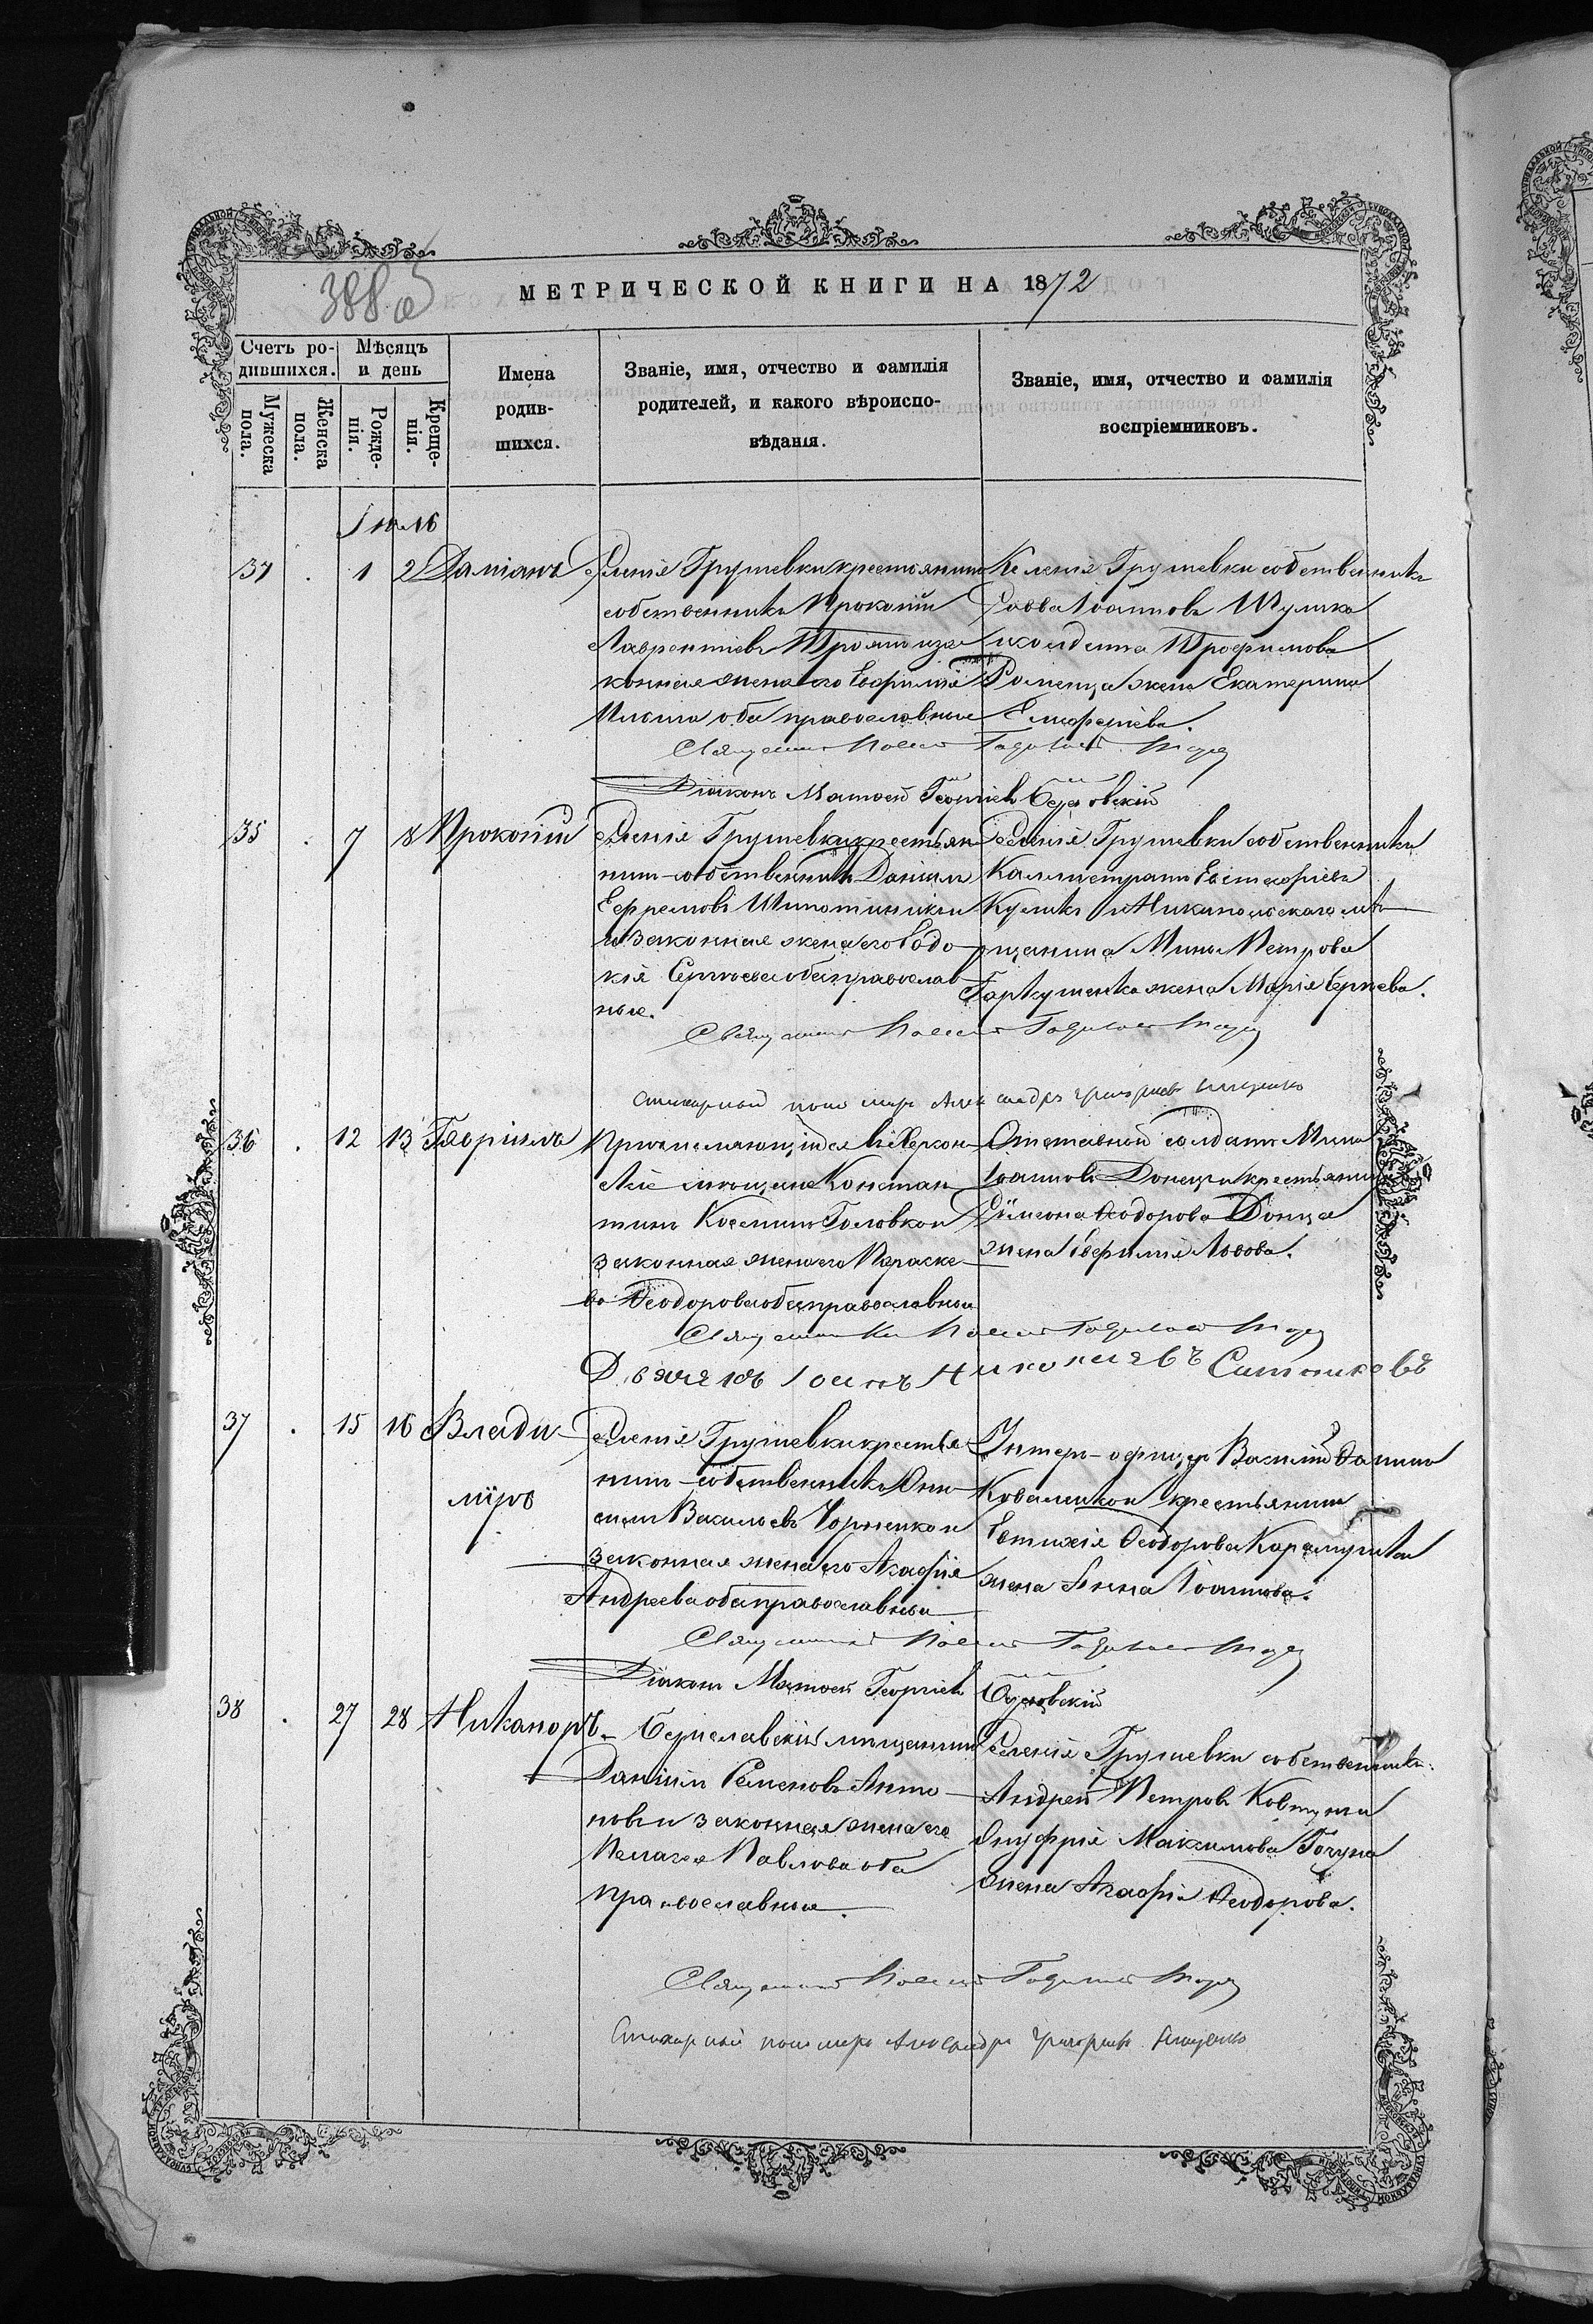 388 об
МЕТРИЧЕСКОЙ КНИГИ НА 1872
Счетъ ро-
дившихся.
Мужеска
пола.
Женска
пола.
Мѣсяцъ
и день
Рожде-
нія.
Креще-
нія.
Имена
родив-
шихся.
Званіе, имя, отчество и фамилія
родителей, и какого вѣроиспо-
вѣданія.
Званіе, имя, отчество и фамилія
воспріемниковъ.
Іюль
37 . 1 2 Даміанъ
Селенія Грушевки крестьянинъ
собственникъ Прокопій
Лаврентіевъ и за
конная жена его Евфимія
Ильина оба православные
Селенія Грушевки собственникъ
Савва Іоанновъ Шулика
и солдата Трофимова
жена Екатерина
Елифеніева.
Священникъ
Діаконъ Матѳей Георгіевъ
35 . 7 8 Прокопій
Селенія Грушевки крестьян
нинъ-собственникъ Даніилъ
Ефремовъ
и законная жена его Евдо
кія Сергѣева оба православ
ные.
Селенія Грушевки собственникъ
Каллистратъ Евстафіевъ
Куликъ и Никипольскаго мѣ
щанина Мины Петрова
Гаркушенка жена Марія Сергѣева.
Священникъ
Стихарный пономарь Александръ Григорьевъ
36 . 12 13 Гавріилъ
Приписмающійся въ Херсон
мѣщане Констан
тинъ Косминъ Головко и
законная жена его Параске
ва Ѳеодорова оба православные
Отставной солдатъ Мина
Іоанновъ Донецъ и крестьянина
Симеона Ѳеодорова Донца
жена Евфимія Львова.
Священникъ
Дьячекъ Іоаннъ Ситниковъ
37 . 15 16 Влади
міръ
Селенія Грушевки крестья
нинъ-собственникъ Они
симъ Васильевъ Чорненко и
законная жена его Агафія
Андреева оба православные
Унтеръ-офицеръ Василій
Коваленко и крестьянина
Евтихія Ѳеодорова
жена Анна Іоаннова.
Священникъ
Діаконъ Матѳей Георгіевъ
38 . 27 28 Никаноръ
Бериславскій мѣщанинъ
Даніилъ Семеновъ Анто
новъ и законная жена его
Пелагея Павлова оба
православные.
Селенія Грушевки собственникъ
Андрей Петровъ Ковтунъ и
Онуфрія Максимова
жена Агафія Ѳеодорова.
Священникъ
Стихарный пономарь Александръ Григорьевъ